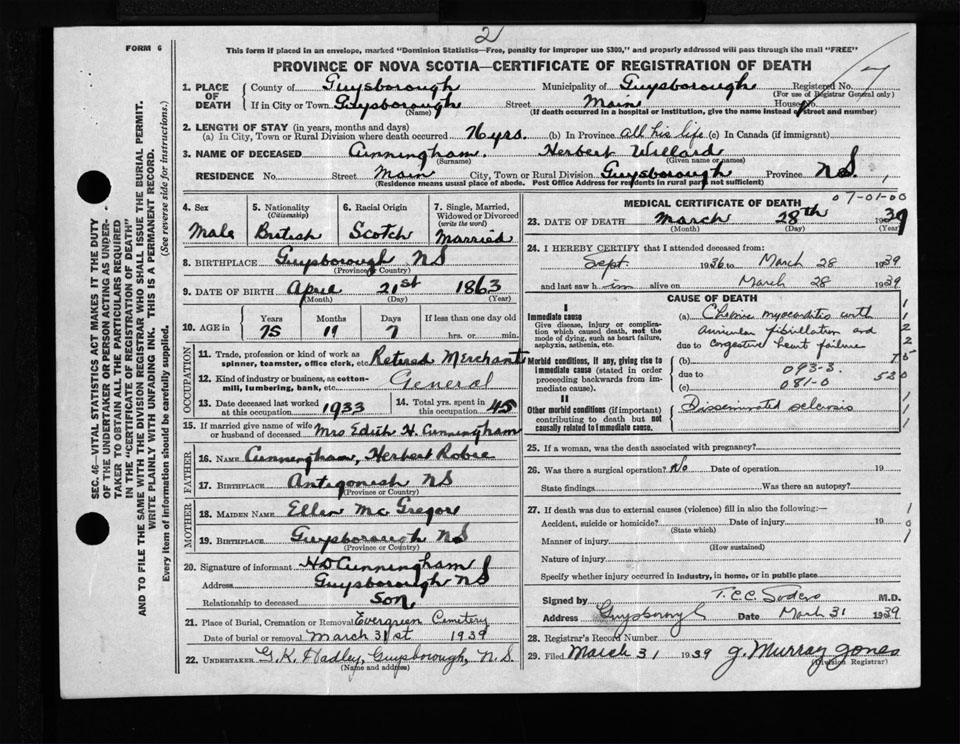 2
FORM 6
This form if placed in an envelope, marked "Dominion Statistics—Free, penalty for improper use $300," and properly addressed will pass through the mail "FREE"
PROVINCE OF NOVA SCOTIA—CERTIFICATE OF REGISTRATION OF DEATH
1. PLACE OF DEATH
County of Guysborough Municipality of Guysborough Registered No. 7
(For use of Registrar General only)
If in City or Town Guysborough Street Main House No.
(Name) (If death occurred in a hospital or institution, give the name instead of street and number)
2. LENGTH OF STAY (in years, months and days)
(a) In City, Town or Rural Division where death occurred yrs. (b) In Province All his life (c) In Canada (if immigrant)
3. NAME OF DECEASED Cunningham. Herbert Willard
(Surname) (Given name or names)
RESIDENCE No. Street Main City, Town or Rural Division Guysborough Province N.S.
(Residence means usual place of abode. Post Office Address for residents in rural parts not sufficient)
4. Sex Male
5. Nationality (Citizenship) British
6. Racial Origin Scotch
7. Single, Married, Widowed or Divorced (write the word) Married
8. BIRTHPLACE Guysborough NS
(Province or Country)
9. DATE OF BIRTH April 21st 1863
(Month) (Day) (Year)
10. AGE in Years 75 Months 11 Days 7 If less than one day old
hrs. or min.
OCCUPATION
11. Trade, profession or kind of work as spinner, teamster, office clerk, etc. Retired Merchant
12. Kind of industry or business, as cotton-mill, lumbering, bank, etc. General
13. Date deceased last worked at this occupation 1933
14. Total yrs. spent in this occupation 45
15. If married give name of wife or husband of deceased Mrs Edith H. Cunningham
FATHER
16. NAME Cunningham, Herbert Robie
17. BIRTHPLACE Antigonish NS
(Province or Country)
MOTHER
18. MAIDEN NAME Ellen Mc Gregor
19. BIRTHPLACE Guysborough NS
(Province or Country)
20. Signature of informant H D Cunningham
Address Guysborough NS
Relationship to deceased Son
21. Place of Burial, Cremation or Removal Evergreen Cemetery
Date of burial or removal March 31st 1939
22. UNDERTAKER G. K. Hadley, Guysborough, N.S.
(Name and address)
MEDICAL CERTIFICATE OF DEATH
07-01-00
23. DATE OF DEATH March 28th 1939
(Month) (Day) (Year)
24. I HEREBY CERTIFY that I attended deceased from:
Sept. 1936 to March 28 1939
and last saw him alive on March 28 1939
CAUSE OF DEATH
I
Immediate cause
Give disease, injury or complication which caused death, not the mode of dying, such as heart failure, asphyxia, asthenia, etc.
(a) Chronic myocarditis with
auricular fibrillation and
due to congestive heart failure
Morbid conditions, if any, giving rise to immediate cause (stated in order proceeding backwards from immediate cause).
(b)
due to 093-3.
(c) 081-0
520
II
Other morbid conditions (if important) contributing to death but not causally related to immediate cause.
Disseminated sclerosis
25. If a woman, was the death associated with pregnancy?
26. Was there a surgical operation? No Date of operation 19
State findings Was there an autopsy?
27. If death was due to external causes (violence) fill in also the following:—
Accident, suicide or homicide? Date of injury 19
(State which)
Manner of injury
(How sustained)
Nature of injury
Specify whether injury occurred in industry, in home, or in public place
Signed by M.D.
Address Guysborough Date Mch 31 1939
28. Registrar's Record Number
29. Filed March 31 1939 J. Murray Jones
(Division Registrar)
SEC. 46—VITAL STATISTICS ACT MAKES IT THE DUTY
OF THE UNDERTAKER OR PERSON ACTING AS UNDERTAKER TO OBTAIN ALL THE PARTICULARS REQUIRED
IN THE "CERTIFICATE OF REGISTRATION OF DEATH"
AND TO FILE THE SAME WITH THE DIVISION REGISTRAR WHO SHALL ISSUE THE BURIAL PERMIT.
WRITE PLAINLY WITH UNFADING INK. THIS IS A PERMANENT RECORD.
Every item of information should be carefully supplied. (See reverse side for instructions.)